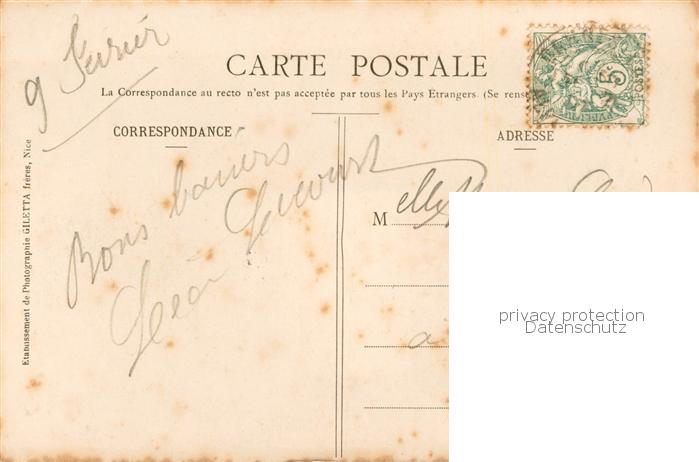 9 Février
CARTE POSTALE
La Correspondance au recto n'est pas acceptée par tous les Pays Etrangers (Se rense
CORRESPONDANCE
ADRESSE
Bons baisers
M elle
à
privacy protection
Datenschutz
5c
POSTES
Etablissement de Photographie GILETTA frères, Nice